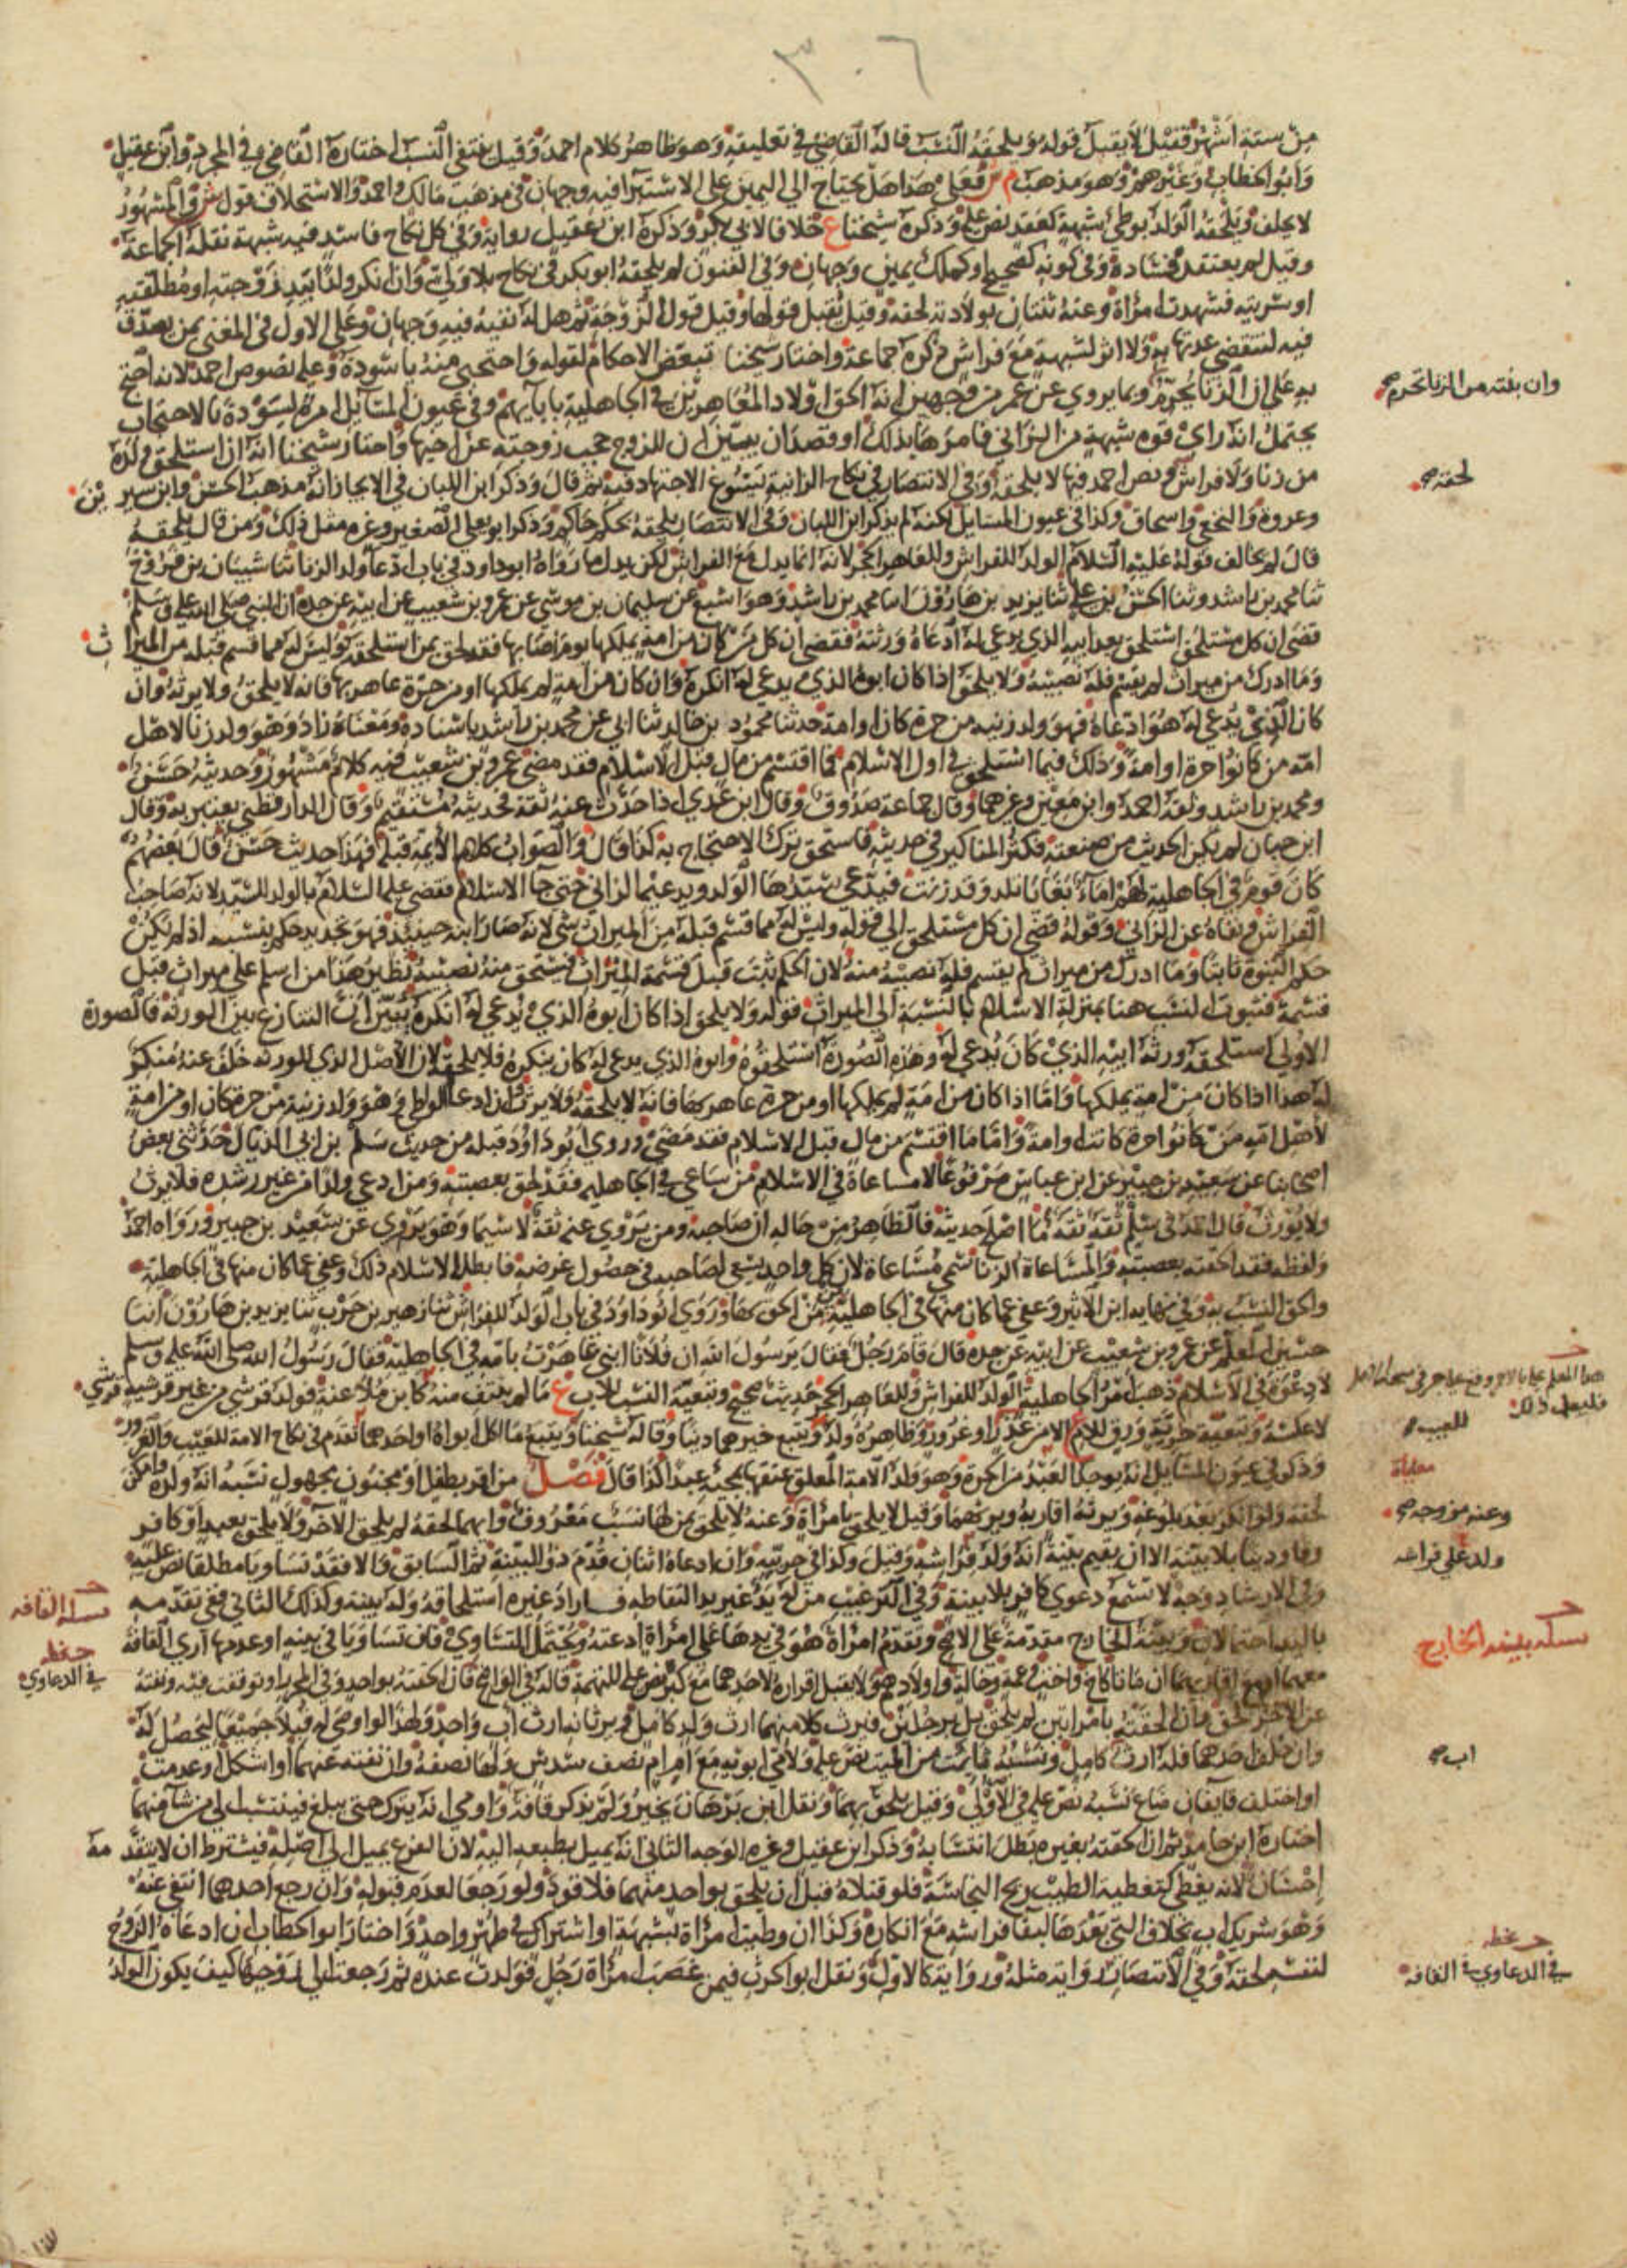 ٣٠٦
من ستة اشهر فقيل لا يقبل قوله ويلحقه النسب قاله القاضي في تعليقه وهو ظاهر كلام احمد وقيل ينتفي النسب اختاره القاضي في المجرد وابن عقيل
وابو الخطاب وغيرهم وهو مذهب م ش فعلى هذا هل يحتاج الى اليمين على الاستبرا فيه وجهان في مذهب مالك واحمد والاستحلاف قول ش والمشهور
لا يحلف ويلحقه الولد بوطي شبهة كعقد نص عليه وذكره شيخنا ع خلافا لابي بكر وذكره ابن عقيل رواية وفي كل نكاح فاسد فيه شبهة نقله الجماعة
وقيل لم يعتقد فساده وفي كونه كصحيح او كملك يمين وجهان وفي الفنون لم يلحقه ابو بكر في نكاح بلا ولي وان انكر ولدا بيد زوجته او مطلقته
او سريته فشهدت امراة وعنه ثنتان بولادته لحقه وقيل يقبل قولها وقيل قول الزوجة ثم هل له نفيه فيه وجهان وعلى الاول في المغني يمن يصدق
فيه لتنقضي عدتها به ولا اثر لشبهة مع فراش ذكره جماعة واختار شيخنا تبعض الاحكام لقوله واحتجبي منه يا سودة وعليه نصوص احمد لانه احتج
وان بنته من الزنا تحرم صح
به على ان الزنا يحرم وبما يروي عن عمر من وجهين انه الحق اولاد العاهرين في الجاهلية بابايهم وفي عيون المسايل امره لسودة بالاحتجاب
يحتمل انه راى قوة شبهة من الزاني فامرها بذلك او قصد ان يبين ان للزوج حجب زوجته عن اخيها واختار شيخنا انه ان استلحق ولده
من زنا ولا فراش ونص احمد فيها لا يلحقه وفي الانتصار في نكاح الزانية يسوغ الاجتهاد فيه ثم قال وذكر ابن اللبان في الايجاز انه مذهب الحسن وابن سيرين
لحقه صح
وعروة والنخعي واسحاق وكذا في عيون المسايل لكنه لم يذكر ابن اللبان وفي الانتصار يلحقه بحكم حاكم وذكر ابو يعلى الصغير وغيره مثل ذلك ومن قال يلحقه
قال لم يخالف قوله عليه السلام الولد للفراش وللعاهر الحجر لانه انما يدل مع الفراش لكن يدل ما رواه ابو داود في باب ادعا ولد الزنا ثنا شيبان بن فروخ
ثنا محمد بن راشد وثنا الحسن بن علي ثنا يزيد بن هارون انا محمد بن راشد وهو اشبع عن سليمان بن موسى عن عمرو بن شعيب عن ابيه عن جده ان النبي صلى الله عليه وسلم
قضى ان كل مستلحق استلحق بعد ابيه الذي يدعى له ادعاه ورثته فقضى ان كل من كان من امة يملكها يوم اصابها فقد لحق بمن استلحقه وليس له مما قسم قبله من الميراث
وما ادرك من ميراث لم يقسم فله نصيبه ولا يلحق اذا كان ابوه الذي يدعى له انكره وان كان من امة لم يملكها او من حرة عاهر بها فانه لا يلحق ولا يرثه وان
كان الذي يدعى له هو ادعاه فهو ولد زنيه من حرة كان او امة حدثنا محمود بن خالد ثنا ابي عن محمد بن راشد باسناده ومعناه زاد وهو ولد زنا لاهل
امه من كانوا حرة او امة وذلك فيما استلحق في اول الاسلام فما اقتسم من مال قبل الاسلام فقد مضى عمرو بن شعيب فيه كلام مشهور وحديثه حسن
ومحمد بن راشد وثقه احمد وابن معين وغيرهما وقال جماعة صدوق وقال ابن عدي اذا حدث عنه ثقة فحديثه مستقيم وقال الدارقطني يعتبر به وقال
ابن حبان لم يكن الحديث من صنعته فكثر المناكير في حديثه فاستحق ترك الاحتجاج به كذا قال والصواب كلام الايمة قبله فهذا حديث حسن قال بعضهم
كان قوم في الجاهلية لهم اماء بغايا تلد وقد زنت فيدعي سيدها الولد ويدعيه الزاني حتى جا الاسلام فقضى عليه السلام بالولد للسيد لانه صاحب
الفراش ونفاه عن الزاني وقوله قضى ان كل مستلحق الى قوله وليس له مما قسم قبله من الميراث شي لانه صار ابنه حينئذ فهو تجديد حكم بنسبه اذ لم يكن
حكم البنوة ثابتا وما ادرك من ميراث لم يقسم فله نصيبه منه لان الحكم ثبت قبل قسمة الميراث فيستحق منه نصيبه نظير هذا من اسلم على ميراث قبل
قسمه فثبوت النسب هنا بمنزلة الاسلام بالنسبة الى الميراث قوله ولا يلحق اذا كان ابوه الذي يدعى له انكره يبين ان التنازع بين الورثة فالصورة
الاولى استلحقه ورثة ابيه الذي كان يدعى له وهذه الصورة استلحقوه وابوه الذي يدعى له كان ينكره فلا يلحقه لان الاصل الذي للورثة خلف عنه منكر
له هذا اذا كان من امة يملكها واما اذا كان من امة لم يملكها او من حرة عاهر بها فانه لا يلحقه ولا يرث وان ادعا الواطي وهو ولد زنية من حرة كان او من امة
لاهل امه من كانوا حرة كانت او امة واما ما اقتسم من مال قبل الاسلام فقد مضى وروى ابو داود قبله من حديث سلم بن ابي الذيال حدثني بعض
اصحابنا عن سعيد بن جبير عن ابن عباس مرفوعا لا مساعاة في الاسلام من ساعى في الجاهلية فقد لحق بعصبته ومن ادعى ولدا من غير رشده فلا يرث
ولا يورث قال احمد في سلم ثقة ثقة ما اصلح حديثه فالظاهر من حاله ان صاحبه ومن يروي عنه ثقة لا سيما وهو يروي عن سعيد بن جبير ورواه احمد
ولفظه فقد الحقته بعصبته والمساعاة الزنا سمي مساعاة لان كل واحد يسعى لصاحبه في حصول غرضه فابطله الاسلام ذلك وعفي عما كان منها في الجاهلية
والحق النسب به وفي نهاية ابن الاثير وعفي عما كان منها في الجاهلية ممن الحق بها وروى ابو داود في باب الولد للفراش ثنا زهير بن حرب ثنا يزيد بن هارون انبا
حسين المعلم عن عمرو بن شعيب عن ابيه عن جده قال قام رجل فقال يرسول الله ان فلانا ابني عاهرت بامه في الجاهلية فقال رسول الله صلى الله عليه وسلم
لا دعوة في الاسلام ذهب امر الجاهلية الولد للفراش وللعاهر الحجر حديث صحيح وتبعية النسب للاب ع ما لم ينتف منه كابن ملاعنة فولد قرشي من غير قرشية قرشي
لا عكسه وتبعية حرية ورق للام ع الا من عذر او غرور وظاهره ولد ويتبع خيرهما دينا وقاله شيخنا ويتبع ما اكل ابواه او احدهما تقدم في نكاح الامة للعيب والغرور
للعيب
وذكر في عيون المسايل انه يوجد العبد من الحرة وهو ولد الامة المعلق عتقها بمجيئه عبدا كذا قال فصل من اقر بطفل او مجنون مجهول نسبه انه ولده وامكن
معاياة
لحقه ولو انكر بعد بلوغه ويرثه اقاربه ويرثهما وقيل لا يلحق بامراة وعنه لا يلحق بمن لها نسب معروف وايهما لحقه لم يلحق الاخر ولا يلحق بعبد او كافر
وعنه مزوجه صح
رقا ودينا بلا بينة الا ان يقيم بينة انه ولد فراشه وقيل وكذا في حريته وان ادعاه اثنان قدم ذو البينة ثم السابق والا فقد تساويا مطلقا نص عليه
ولد على فراشه
وفي الارشاد وجه لا تسمع دعوى كافر بلا بينة وفي الترغيب من له يد غير يد التقاطه فاراد غيره استلحاقه وله بينة وكذلك الثاني ففي تقديمه
مسله القافه
باليد احتمالان وبينة الخارج مقدمة على الاصح وتقدم امراة هو في يدها على امراة ادعته ويحتمل التساوي فان تساويا في بينة او عدمها اري القافة
مسله بينه الخارج
في الدعاوي
معهما او مع اقاربهما ان ماتا كاخ واخت وعمة وخالة واولادهم ولا يقبل اقراره لاحدهما مع كبر نص عليه للتهمة قاله في الواضح فان الحقته بواحد وفي المحرر او توقفت فيه ونفته
عن الاخر لحق فان الحقته بامراتين لم يلحق بل برجلين فيرث كلا منهما ارث ولد كامل ويرثانه ارث اب واحد ولهذا لو اوصى له قبلا جميعا ليحصل له
وان خلف احدهما فله ارث كامل ونسبه ثابت من الميت نص عليه ولامي ابويه مع ام ام نصف سدس ولها نصفه وان نفته عنهما او اشكل او عدمت
اب صح
او اختلف قايفان ضاع نسبه نص عليه في الاولى وقيل يلحق بهما ونقل ابن برهان يخير ولم يذكر قافة واومي انه يترك حتى يبلغ فينتسب الى من شا منهما
اختاره ابن حامد ثم ان الحقته بغيره بطل انتسابه وذكر ابن عقيل وغيره الوجه الثاني انه يميل بطبعه اليه لان الفرع يميل الى اصله فيشترط ان لا يتقدمه
احسان لانه يغطي كتغطية الطيب ريح النجاسة فلو قتلاه قبل ان يلحق بواحد منهما فلا قود ولو رجعا لعدم قبوله وان رجع احدهما انتفى عنه
وهو شريك اب بخلاف التي بعدها لبقا فراشه مع انكاره وكذا ان وطيت امراة بشبهة او اشتراك في طهر واحد واختار ابو الخطاب ان ادعاه الزوج
لنفسه لحقه وفي الانتصار رواية مثله ورواية كالاول ونقل ابو الحرث فيمن غصب امراة رجل فولدت عنده ثم رجعت الى زوجها كيف يكون الولد
في الدعاوي في القافه